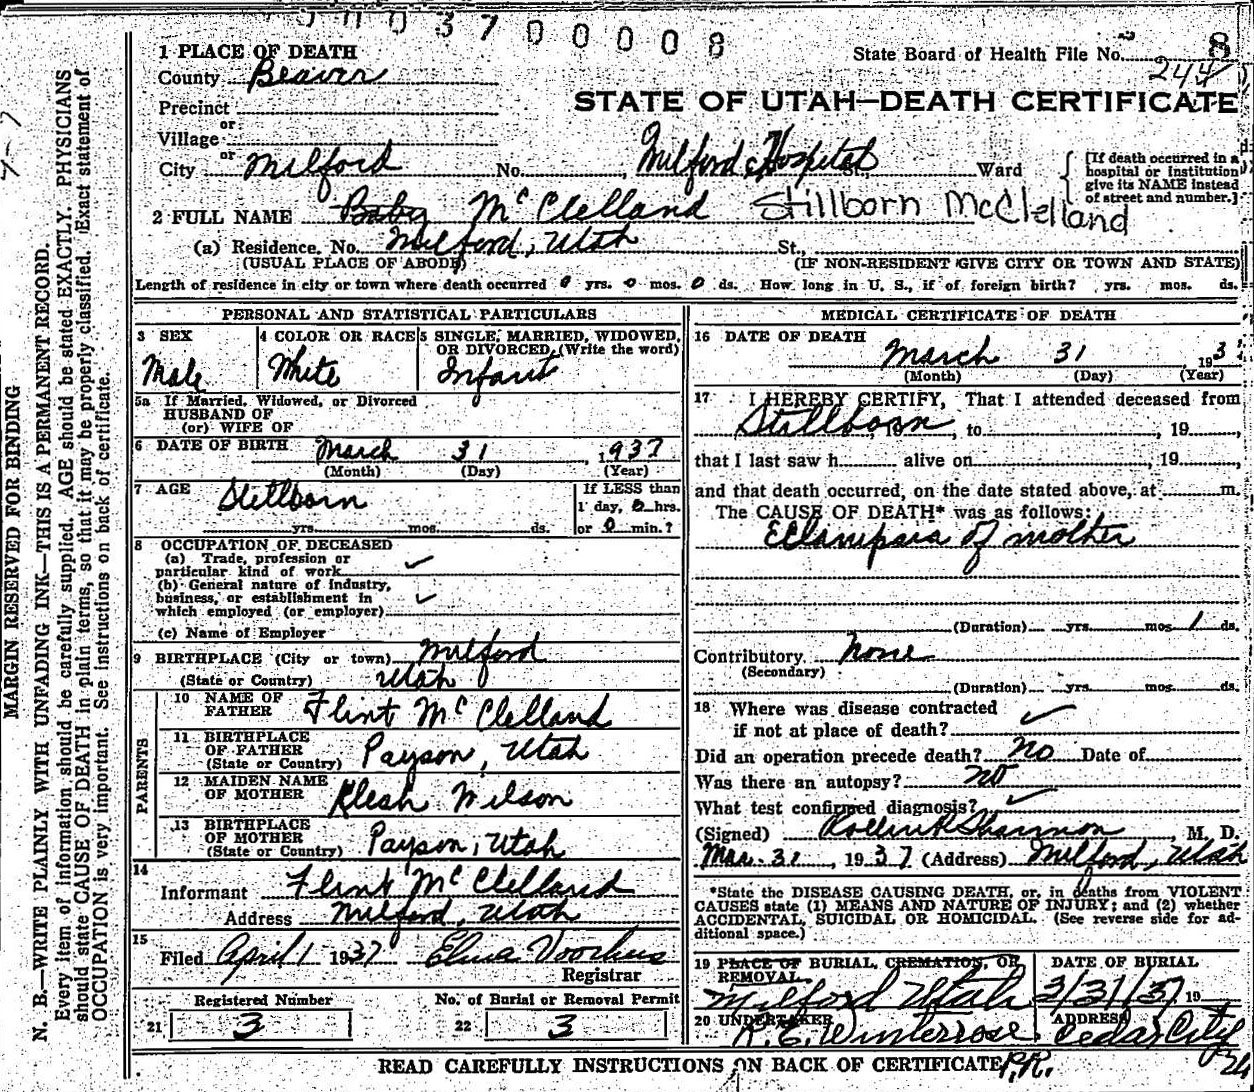 003700008
1 PLACE OF DEATH
State Board of Health File No. 8
244
County Beaver
STATE OF UTAH—DEATH CERTIFICATE
Precinct
or
Village
or
City Milford No. Milford Hospital St. Ward
[If death occurred in a hospital or Institution give its NAME instead of street and number.]
2 FULL NAME Baby McClelland Stillborn McClelland
(a) Residence. No. Milford, Utah St.,
(USUAL PLACE OF ABODE) (IF NON-RESIDENT GIVE CITY OR TOWN AND STATE)
Length of residence in city or town where death occurred 0 yrs. 0 mos. 0 ds. How long in U. S., if of foreign birth? yrs. mos. ds.
PERSONAL AND STATISTICAL PARTICULARS
3 SEX
Male
4 COLOR OR RACE
White
5 SINGLE, MARRIED, WIDOWED, OR DIVORCED, (Write the word)
Infant
5a If Married, Widowed, or Divorced
HUSBAND OF
(or) WIFE OF
6 DATE OF BIRTH March 31, 1937
(Month) (Day) (Year)
7 AGE Stillborn
yrs. mos. ds.
If LESS than
1 day, 0 hrs.
or 0 min.?
8 OCCUPATION OF DECEASED
(a) Trade, profession or
particular kind of work ✓
(b) General nature of Industry,
business, or establishment in ✓
which employed (or employer)
(c) Name of Employer
9 BIRTHPLACE (City or town) Milford
(State or Country) Utah
PARENTS
10 NAME OF FATHER Flint McClelland
11 BIRTHPLACE OF FATHER Payson, Utah
(State or Country)
12 MAIDEN NAME OF MOTHER Klesh Wilson
13 BIRTHPLACE OF MOTHER
(State or Country) Payson, Utah
14
Informant Flint McClelland
Address Milford, Utah
15
Filed April 1 1937 Elma Voorhees
Registrar
Registered Number
21 3
No. of Burial or Removal Permit
22 3
MEDICAL CERTIFICATE OF DEATH
16 DATE OF DEATH
March 31 193
(Month) (Day) (Year)
17 I HEREBY CERTIFY, That I attended deceased from
Stillborn, to , 19 ,
that I last saw h alive on , 19 ,
and that death occurred, on the date stated above, at m.
The CAUSE OF DEATH* was as follows:
Eclampsia of mother
(Duration) yrs. mos. 1 ds.
Contributory None
(Secondary)
(Duration) yrs. mos. ds.
18 Where was disease contracted
if not at place of death? ✓
Did an operation precede death? No Date of
Was there an autopsy? no
What test confirmed diagnosis? ✓
(Signed) Rollin R Shannon, M. D.
Mar. 31, 1937 (Address) Milford, Utah
*State the DISEASE CAUSING DEATH, or, in deaths from VIOLENT
CAUSES state (1) MEANS AND NATURE OF INJURY; and (2) whether
ACCIDENTAL, SUICIDAL OR HOMICIDAL. (See reverse side for ad-
ditional space.)
19 PLACE OF BURIAL, CREMATION, OR REMOVAL
Milford Utah
DATE OF BURIAL
3/31/37 19
20 UNDERTAKER
R. E. Winterrose
ADDRESS
Cedar City
READ CAREFULLY INSTRUCTIONS ON BACK OF CERTIFICATE P.R.
MARGIN RESERVED FOR BINDING
N. B.—WRITE PLAINLY WITH UNFADING INK—THIS IS A PERMANENT RECORD.
Every item of information should be carefully supplied. AGE should be stated EXACTLY. PHYSICIANS
should state CAUSE OF DEATH in plain terms, so that it may be properly classified. Exact statement of
OCCUPATION is very important. See instructions on back of certificate.